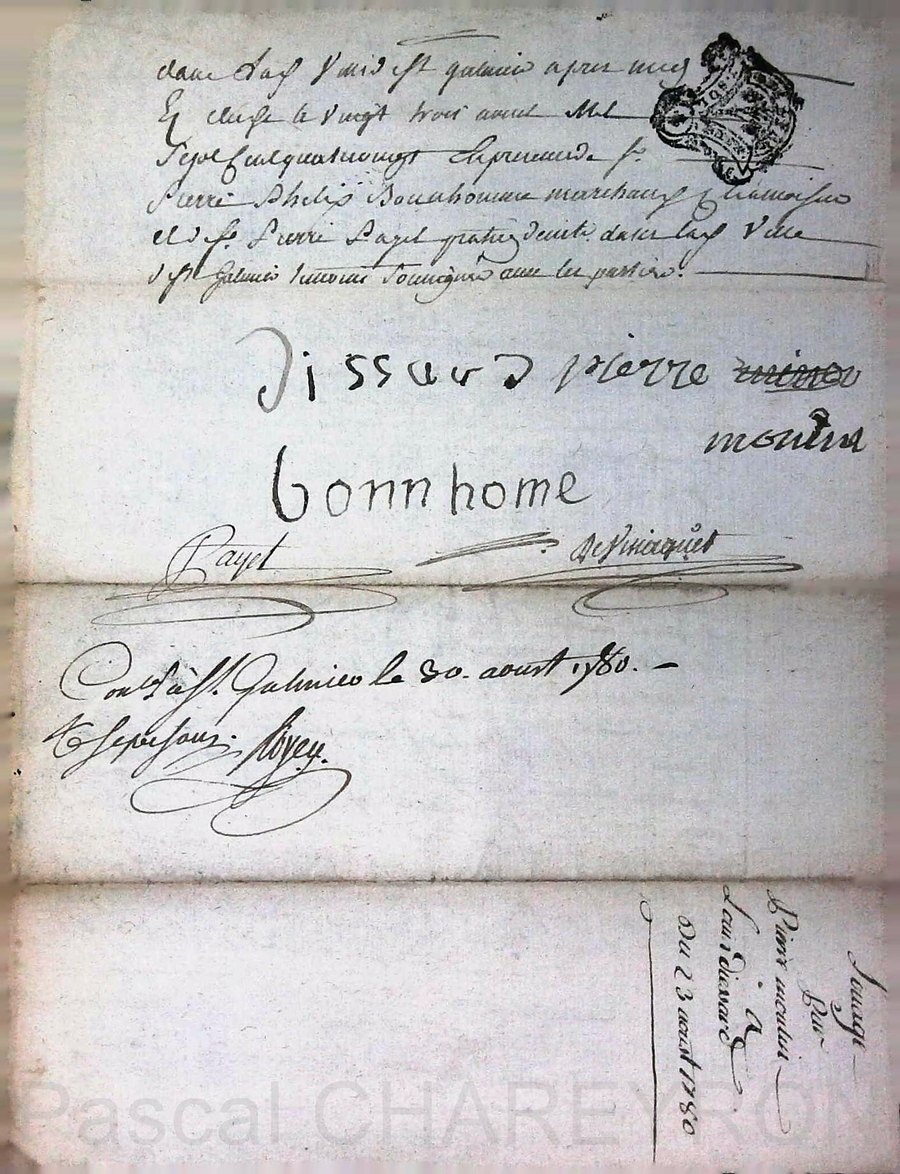 dans lad. Ville de St galmier apres midy
Le vingt trois aoust Mil
Sept Cent quatrevingt En presence de Sr.
Pierre Philip Bonnhomme marchand
et de Sr. Pierre Payet praticien dans lad. Ville
de St Galmier temoins Soussignés avec les parties.
Dissard pierre
moulin
bonnhome
Payet
St. Galmier le 30. aoust 1780. -
Royer.
Par
Pierre moulin
a
Dissard
Du 23 aoust 1780
Pascal CHAREYRON